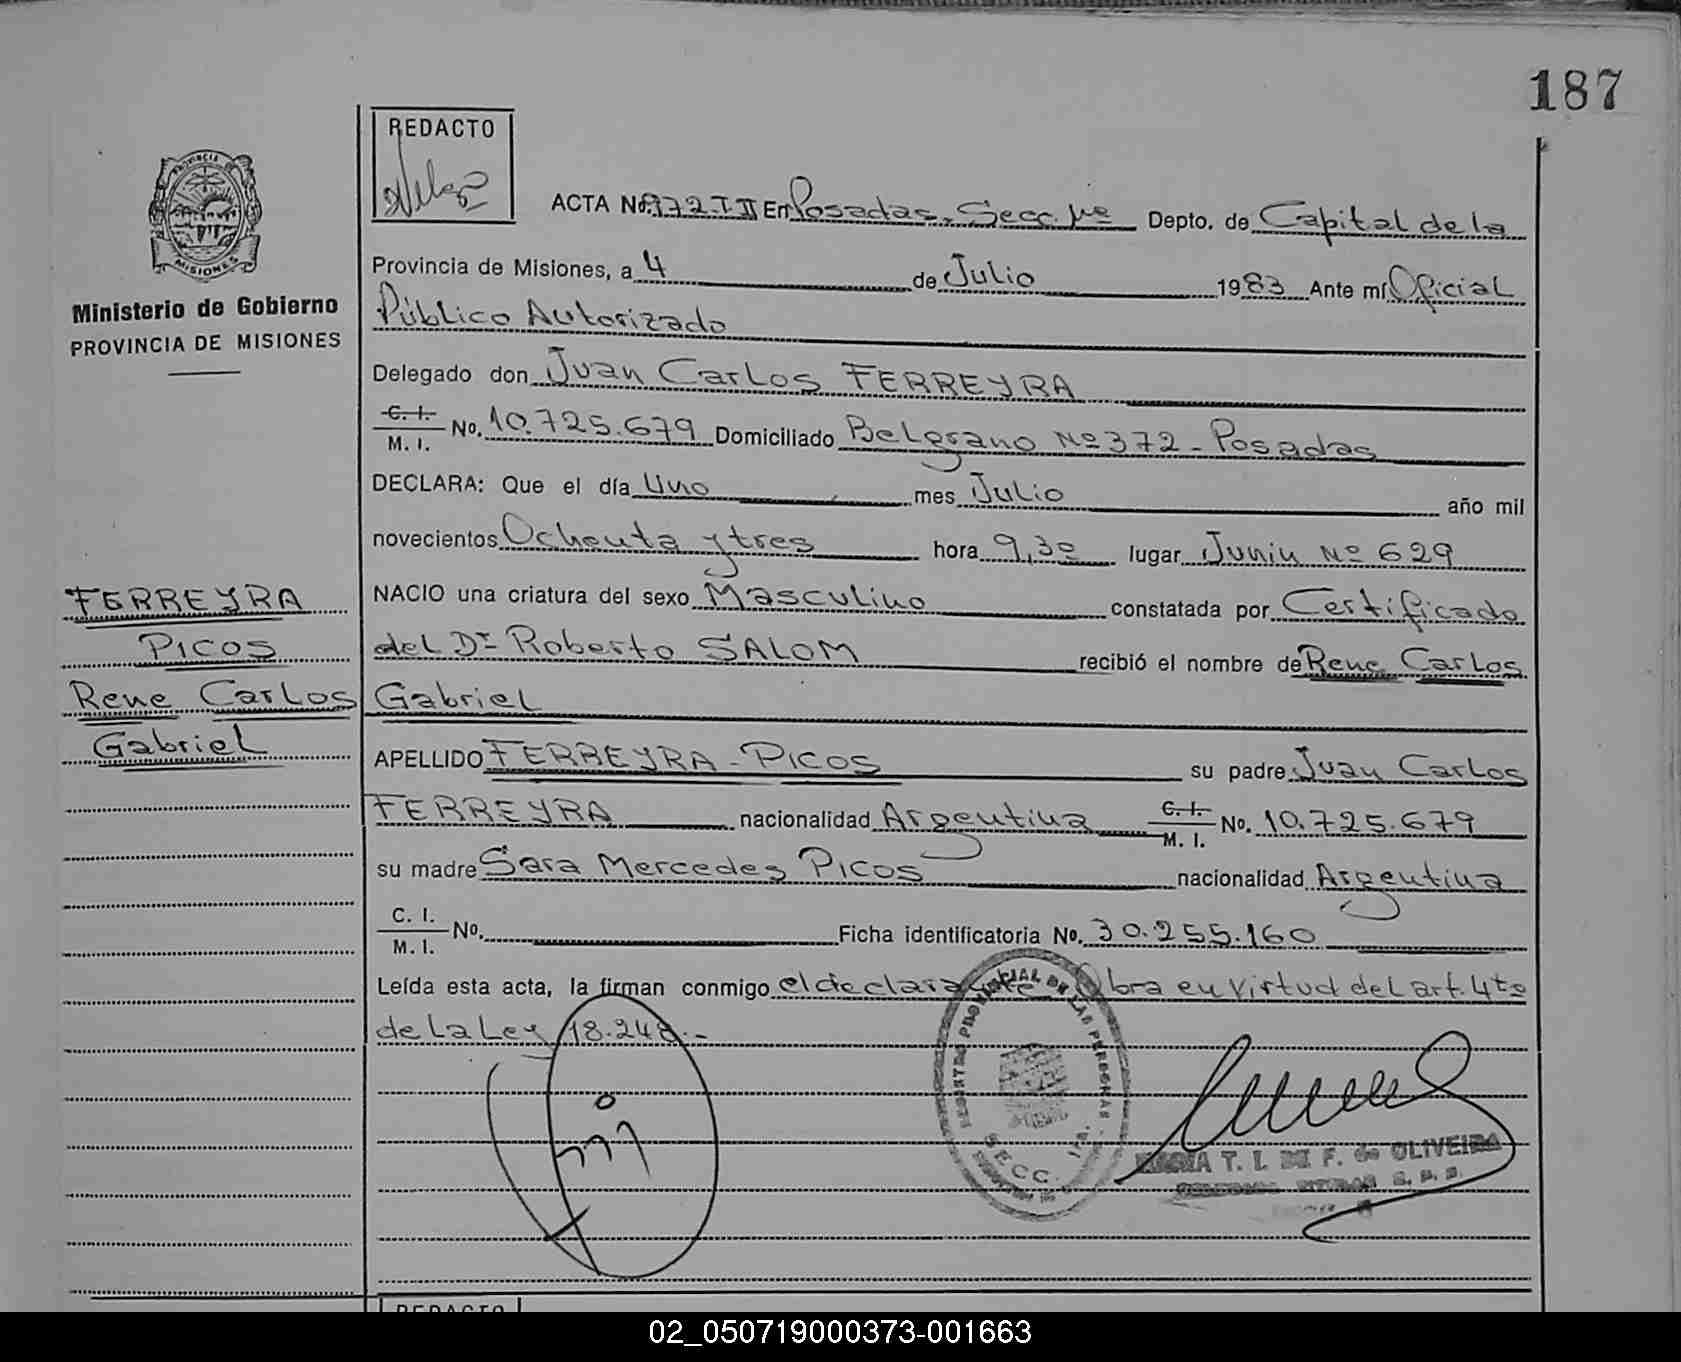 187
REDACTO
PROVINCIA DE
MISIONES
Ministerio de Gobierno
PROVINCIA DE MISIONES
ACTA No. 972 T II En Posadas, Secc. 1ra Depto. de Capital de la
Provincia de Misiones, a 4 de Julio 1983 Ante mí Oficial
Público Autorizado
Delegado don Juan Carlos FERREYRA
C. I.
M. I. No. 10.725.679 Domiciliado Belgrano Nº 372 - Posadas
DECLARA: Que el día Uno mes Julio año mil
novecientos Ochenta y tres hora 9,30 lugar Junin Nº 629
NACIO una criatura del sexo Masculino constatada por Certificado
del Dr. Roberto SALOM recibió el nombre de Rene Carlos
Gabriel
APELLIDO FERREYRA - PICOS su padre Juan Carlos
FERREYRA nacionalidad Argentina C. I.
M. I. No. 10.725.679
su madre Sara Mercedes PICOS nacionalidad Argentina
C. I.
M. I. No. Ficha identificatoria No. 30.255.160
Leída esta acta, la firman conmigo el declarante Obra en virtud del art. 4to
de la Ley 18.248.-
FERREYRA
PICOS
Rene Carlos
Gabriel
REGISTRO PROVINCIAL DE LAS PERSONAS
SECC. 1ra.
MARIA T. I. DE F. de OLIVEIRA
REDACTO
02_050719000373-001663